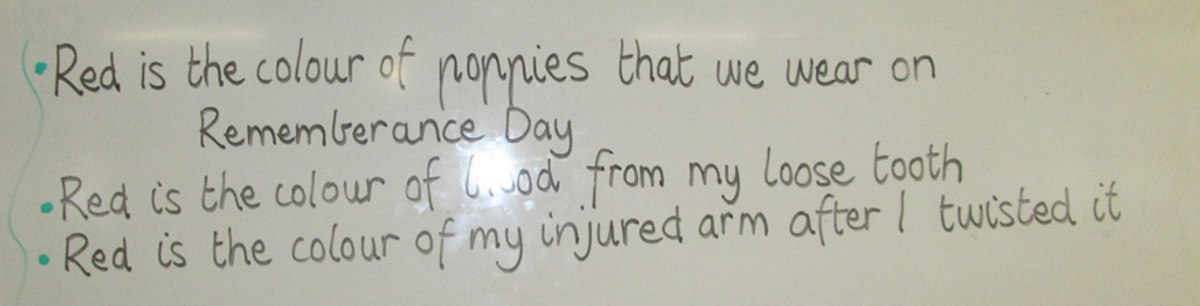 • Red is the colour of poppies that we wear on
Rememberance Day
• Red is the colour of blood from my loose tooth
• Red is the colour of my injured arm after I twisted it